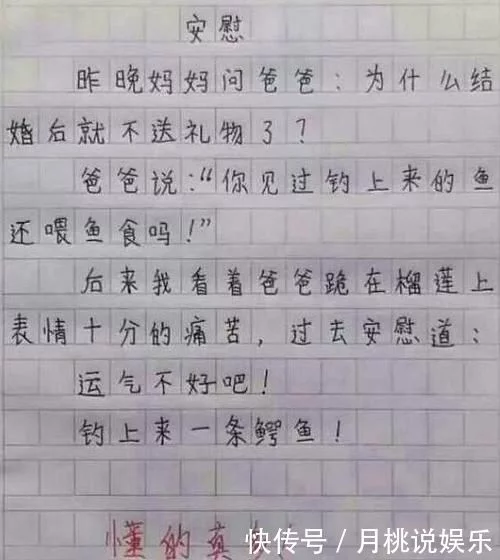 安慰
昨晚妈妈问爸爸:为什么结
婚后就不送礼物了?
爸爸说:“你见过钓上来的鱼
还喂鱼食吗!”
后来我看着爸爸跪在榴莲上
表情十分的痛苦,过去安慰道:
运气不好吧!
钓上来一条鳄鱼!
懂的真
快传号/月桃说娱乐